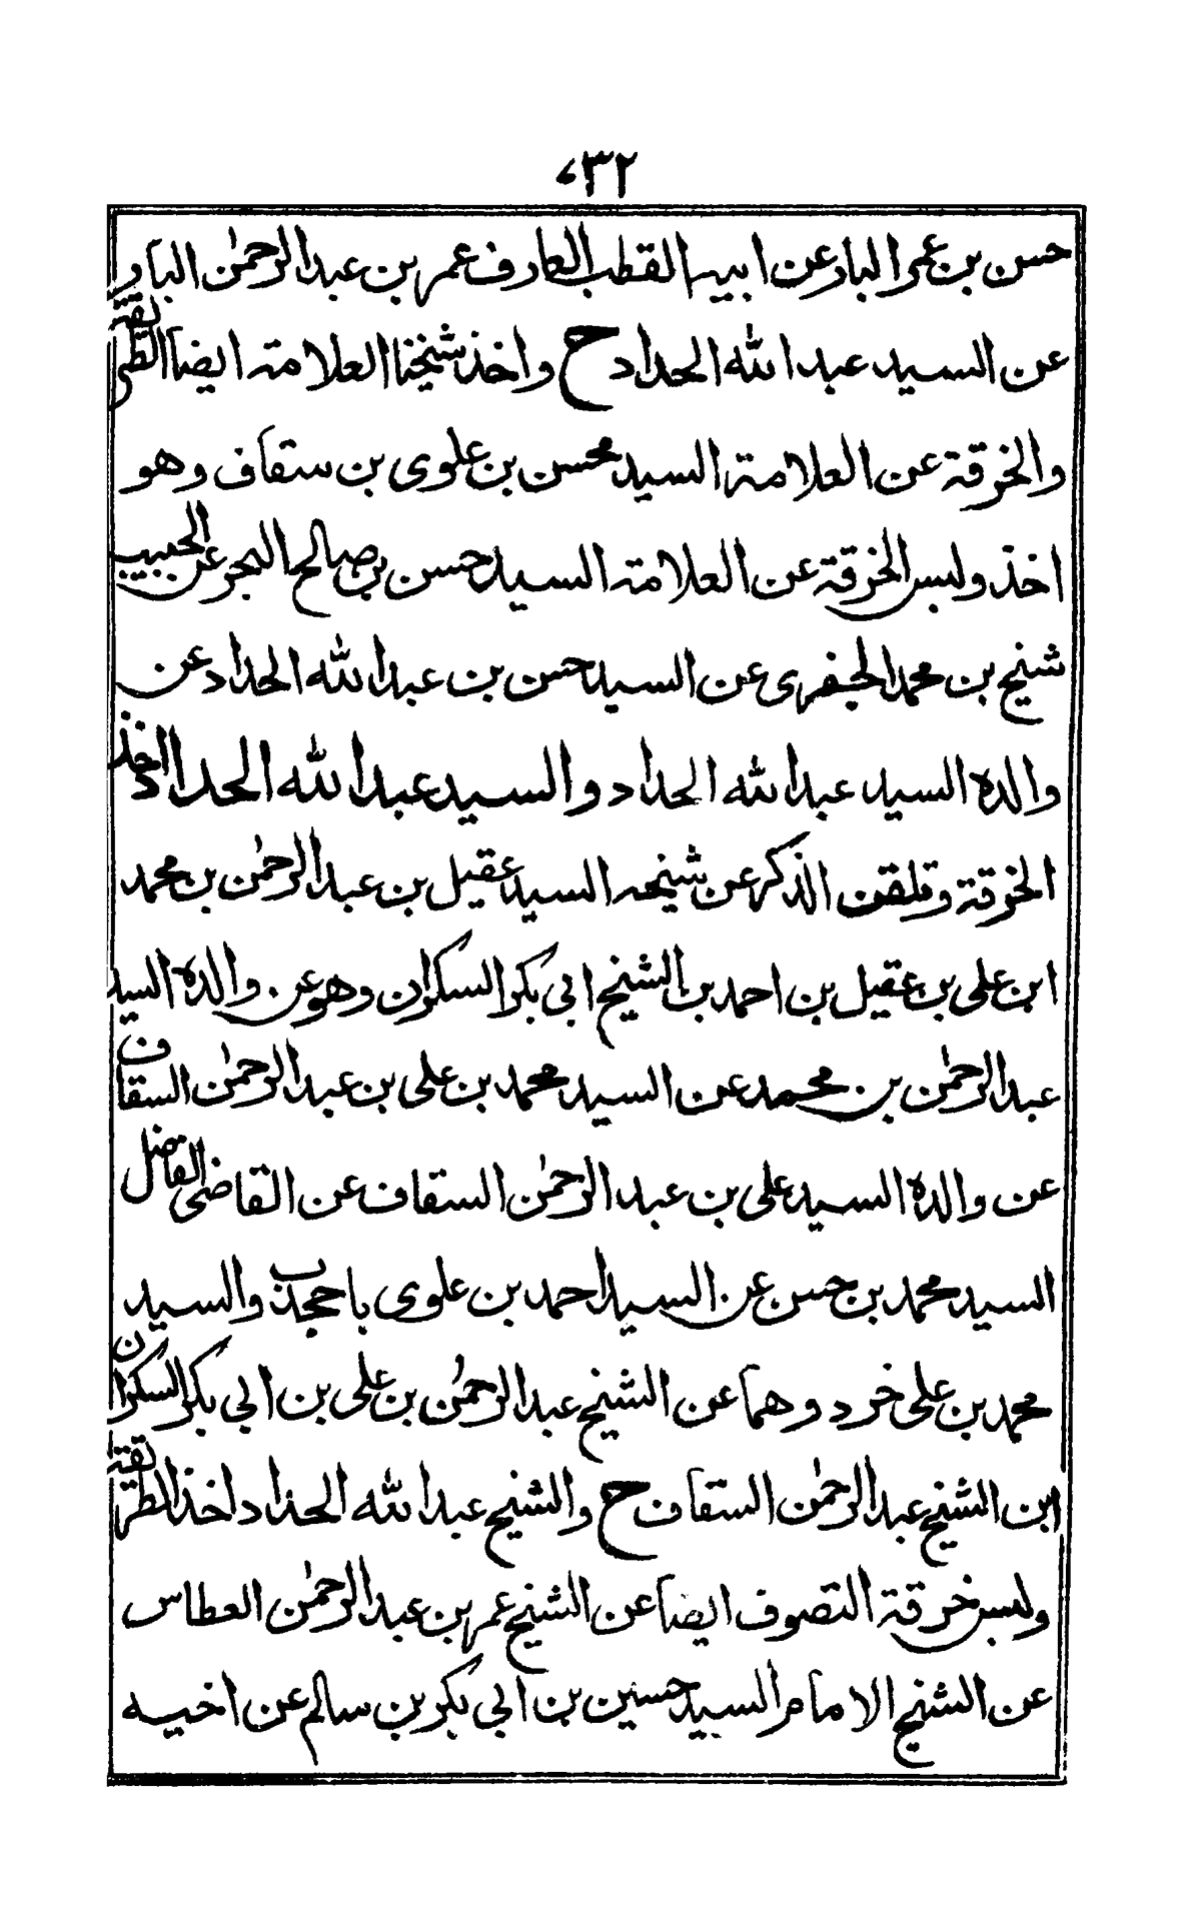 ٧٣٢
حسن بن عمر البار عن ابيه القطب العارف عمر بن عبد الرحمٰن البار
عن السيد عبد الله الحداد ح واخذ شيخنا العلامة ايضا الطريقة
والخرقة عن العلامة السيد محسن بن علوى بن سقاف وهو
اخذ ولبس الخرقة عن العلامة السيد حسن بن صالح البحر عن الحبيب
شيخ بن محمد الجفرى عن السيد حسن بن عبد الله الحداد عن
والده السيد عبد الله الحداد والسيد عبد الله الحداد اخذ
الخرقة وتلقن الذكر عن شيخه السيد عقيل بن عبد الرحمٰن بن محمد
ابن على بن عقيل بن احمد بن الشيخ ابي بكر السكران وهو عن والده السيد
عبد الرحمٰن بن محمد عن السيد محمد بن على بن عبد الرحمٰن السقاف
عن والده السيد على بن عبد الرحمٰن السقاف عن القاضى الفاضل
السيد محمد بن حسن عن السيد احمد بن علوى باجحدب والسيد
محمد بن على خرد وهما عن الشيخ عبد الرحمٰن بن على بن ابي بكر السكران
ابن الشيخ عبد الرحمٰن السقاف ح والشيخ عبد الله الحداد اخذ الطريقة
ولبس خرقة التصوف ايضا عن الشيخ عمر بن عبد الرحمٰن العطاس
عن الشيخ الامام السيد حسين بن ابي بكر بن سالم عن اخيه